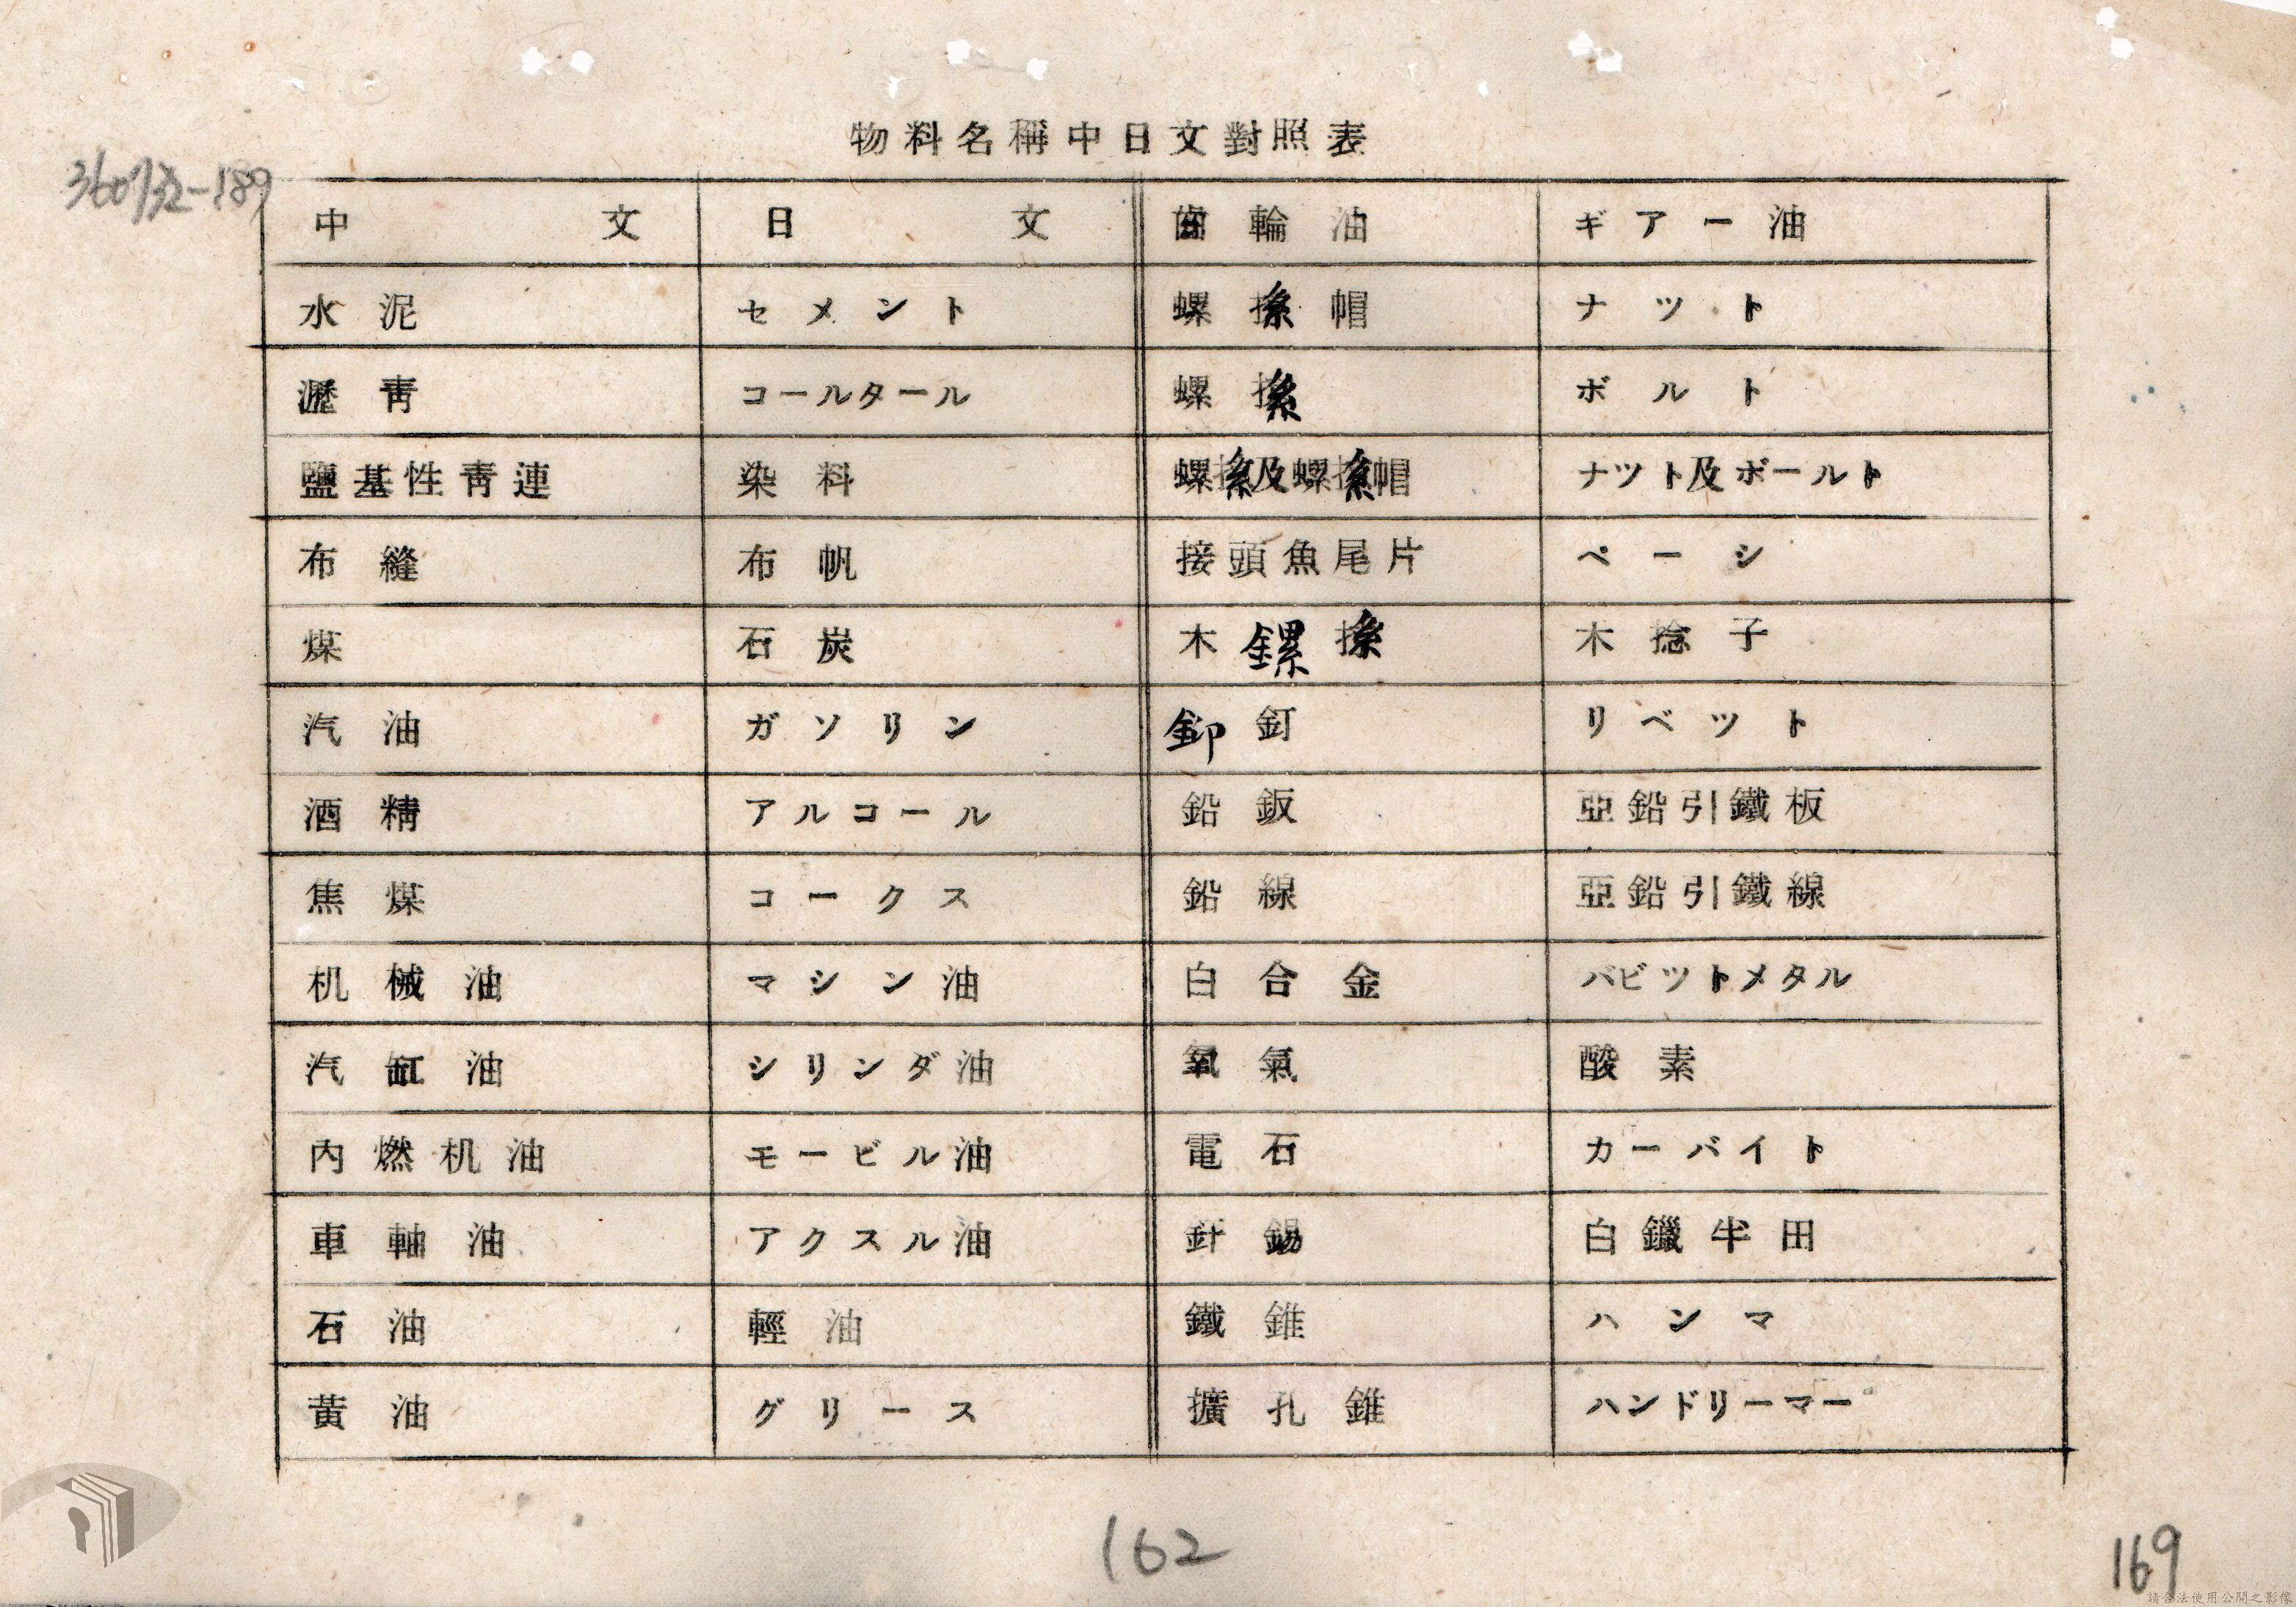 物料名稱中日文對照表
中文 日文 齒輪油 ギアー油
水泥 セメント 螺 帽 ナツト
瀝靑 コールタール 螺 ボルト
鹽基性靑連 染料 及螺 帽 ナツト及ボールト
布縫 布帆 接頭魚尾片 ペーシ
煤 石炭 木鏍 木捻子
汽油 ガソリン 鉚釘 リベツト
酒精 アルコール 鉛鈑 亞鉛引鐵板
焦煤 コークス 鉛線 亞鉛引鐵線
机械油 マシン油 白合金 バビツトメタル
汽缸油 シリンダ油 氧氣 酸素
內燃机油 モービル油 電石 カーバイト
車軸油 アクスル油 針錫 白鑞半田
石油 輕油 鐵錐 ハンマ
黃油 グリース 擴孔錐 ハンドリーマー
162
169
請合法使用公開之影像